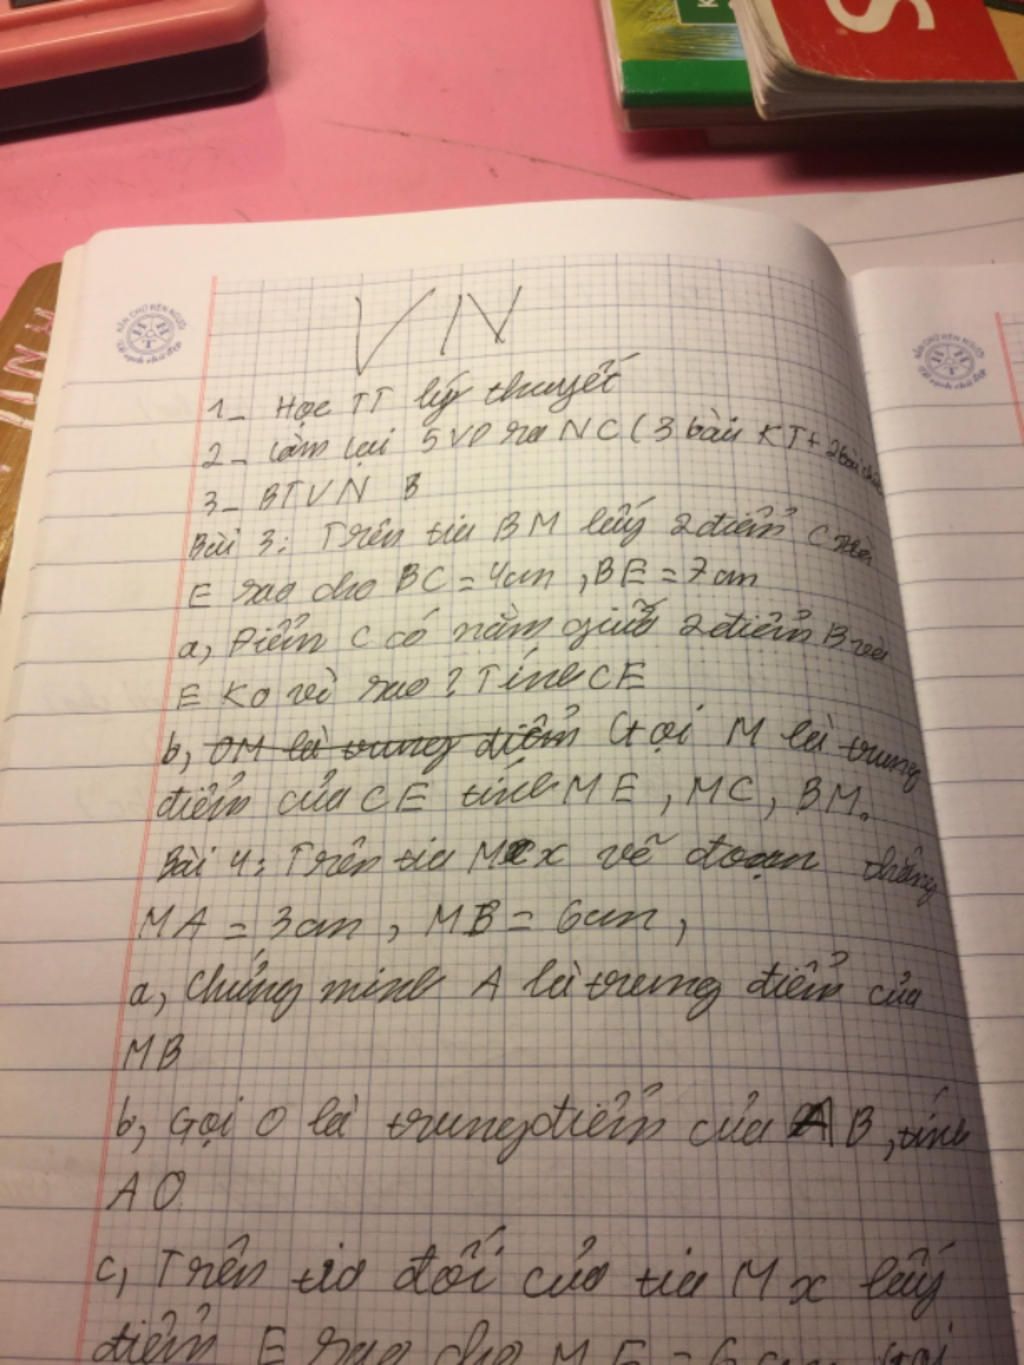 VN
1_ Học TT lý thuyết
2_ Làm lại 5 VD ra NC (3 bài KT + 2 bài
3_ BTVN B
Bài 3: Trên tia BM lấy 2 điểm C và
E sao cho BC = 4cm, BE = 7cm
a, Điểm C có nằm giữa 2 điểm B và
E Ko vì sao? Tính CE
b, OM là trung điểm Gọi M là trung
điểm của CE tính ME, MC, BM.
Bài 4: Trên tia Mx vẽ đoạn thẳng
MA = 3cm, MB = 6cm,
a, Chứng minh A là trung điểm của
MB
b, Gọi O là trung điểm của AB, tính
AO
c, Trên tia đối của tia Mx lấy
điểm E sao cho ME = 6cm